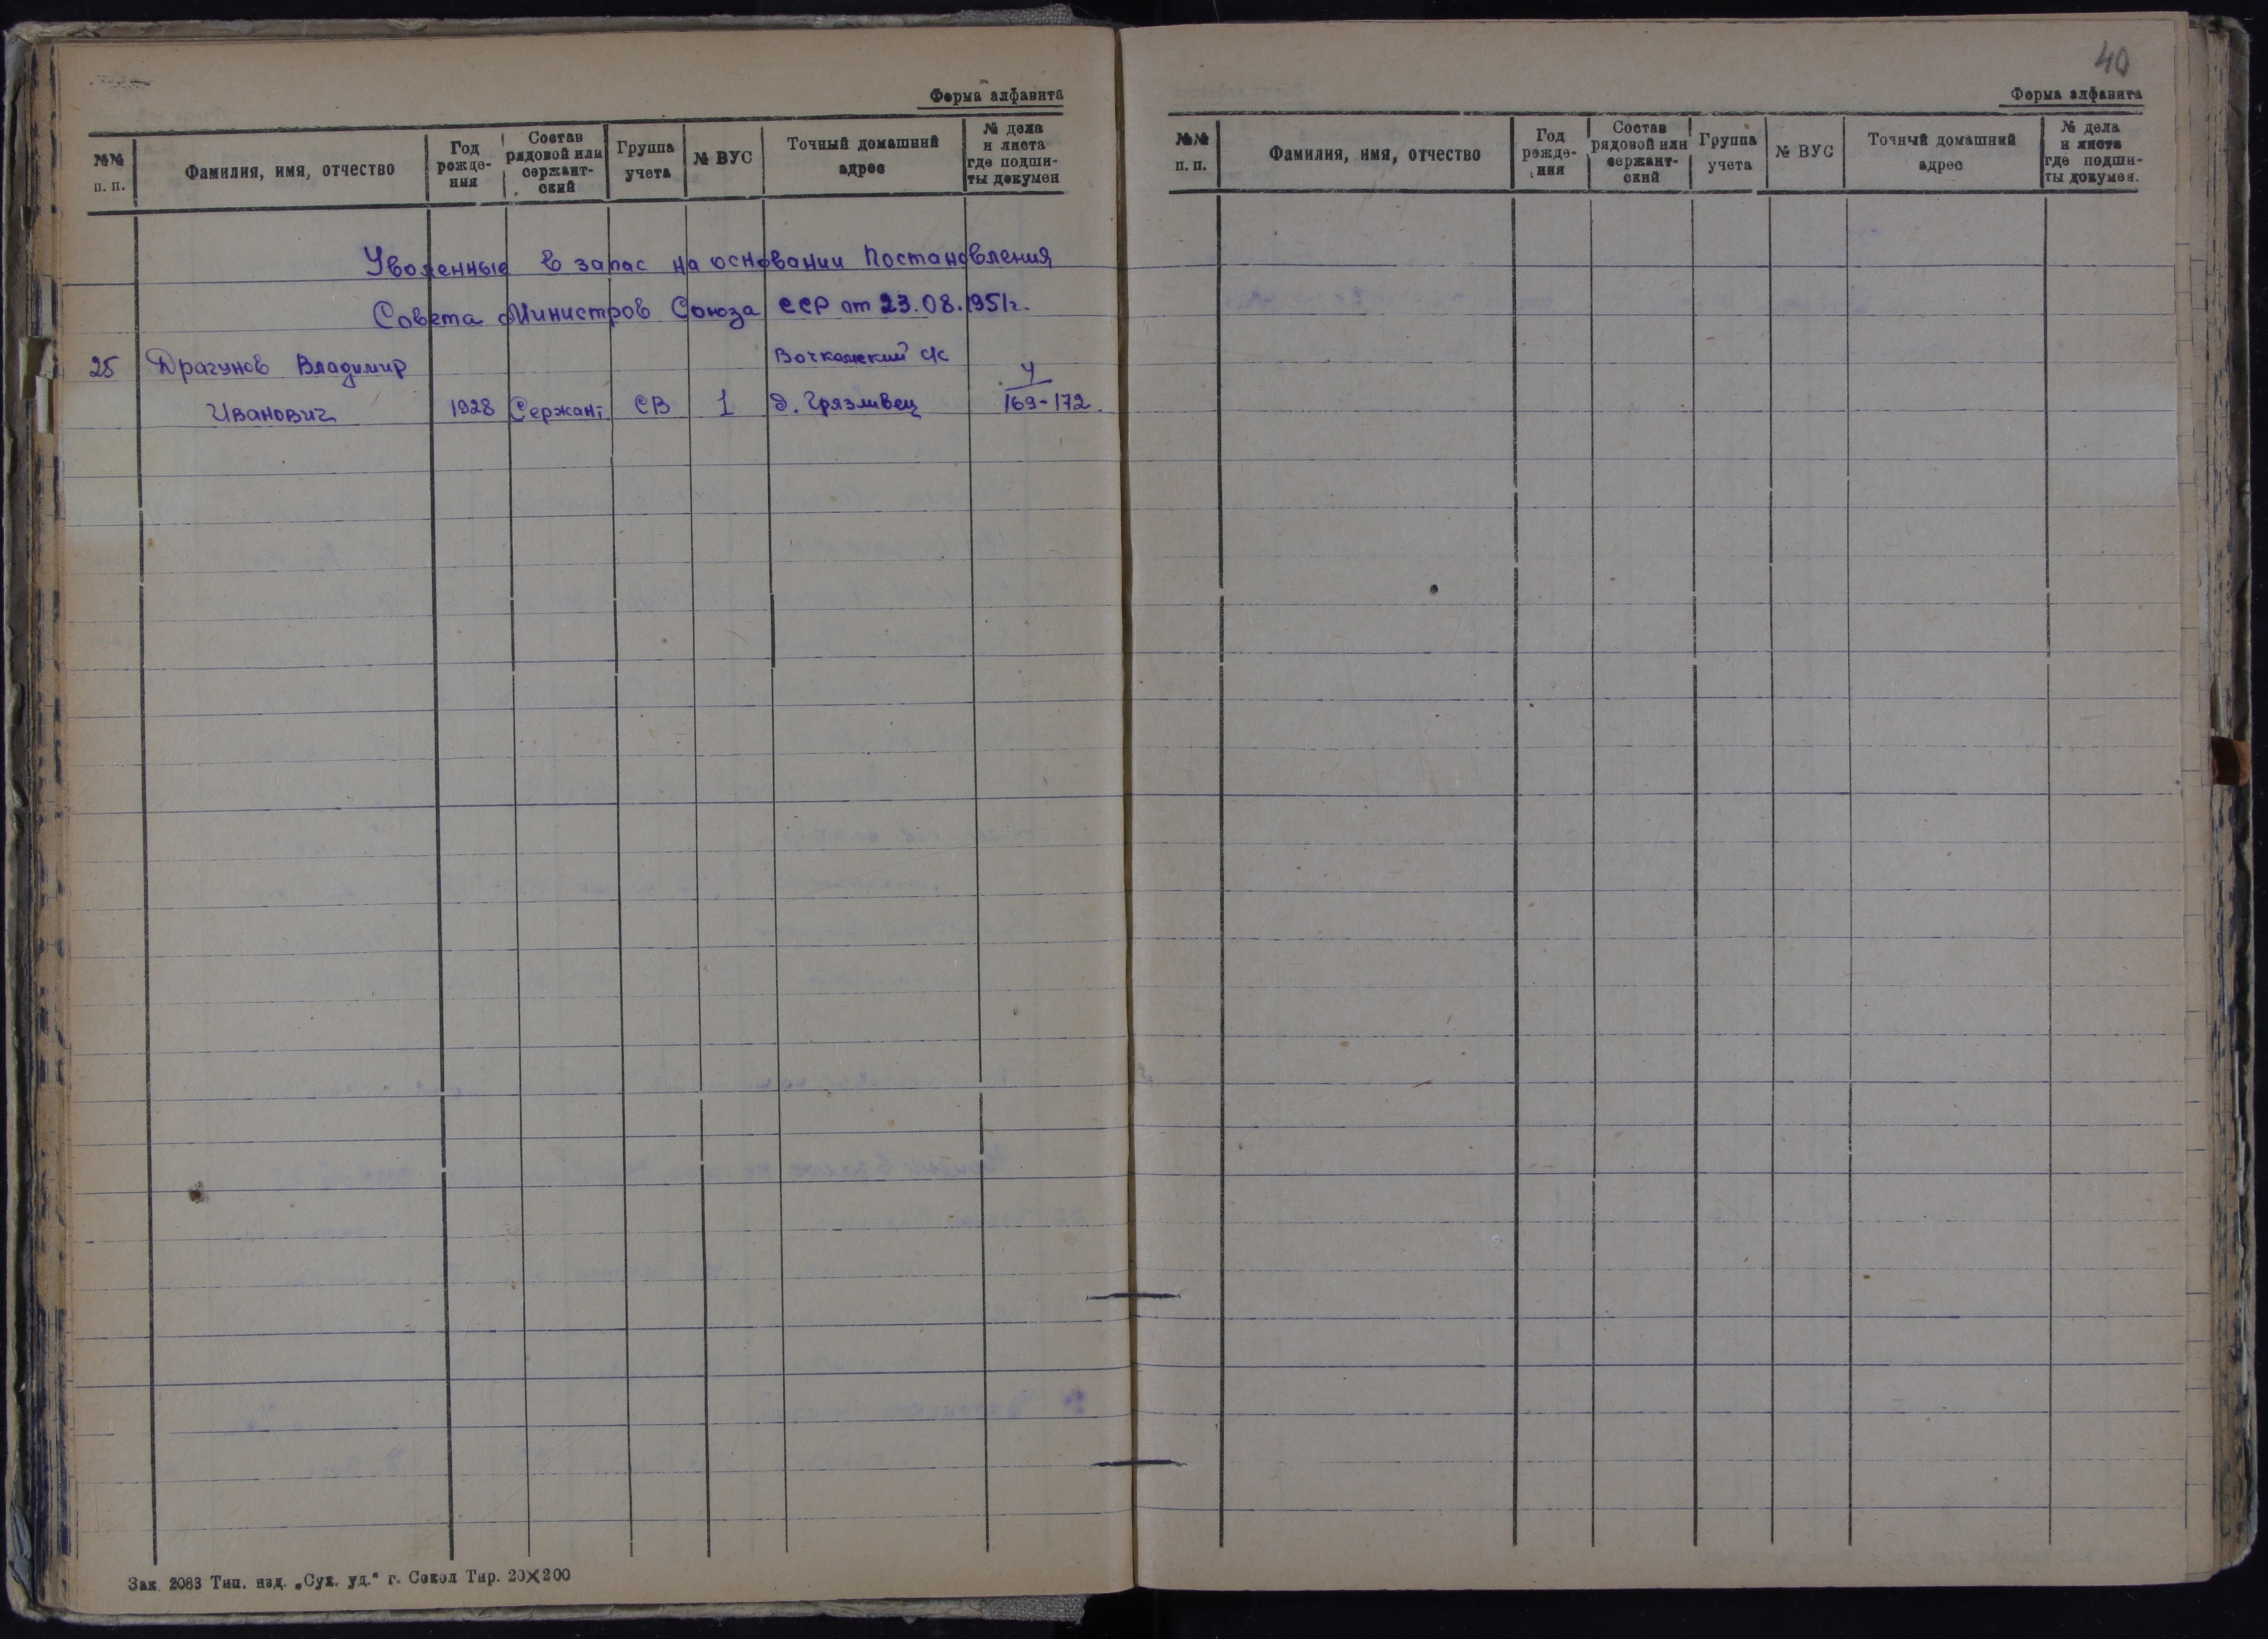 Форма алфавита
№№ п. п.
Фамилия, имя, отчество
Год рожде-ния
Состав рядовой или сержант-ский
Группа учета
№ ВУС
Точный домашний адрес
№ дела и листа где подши-ты докумен
Уволенные в запас на основании Постановления
Совета Министров Союза ССР от 23.08.1951г.
25 Драгунов Владимир с/с 4
Иванович 1928 Сержант СВ 1 д. Грязливец 169-172
Зак. 2083 Тип. изд. „Сух. уд.“ г. Сокол Тир. 20×200
40
Форма алфавита
№№ п. п.
Фамилия, имя, отчество
Год рожде-ния
Состав рядовой или сержант-ский
Группа учета
№ ВУС
Точный домашний адрес
№ дела и листа где подши-ты докумен.